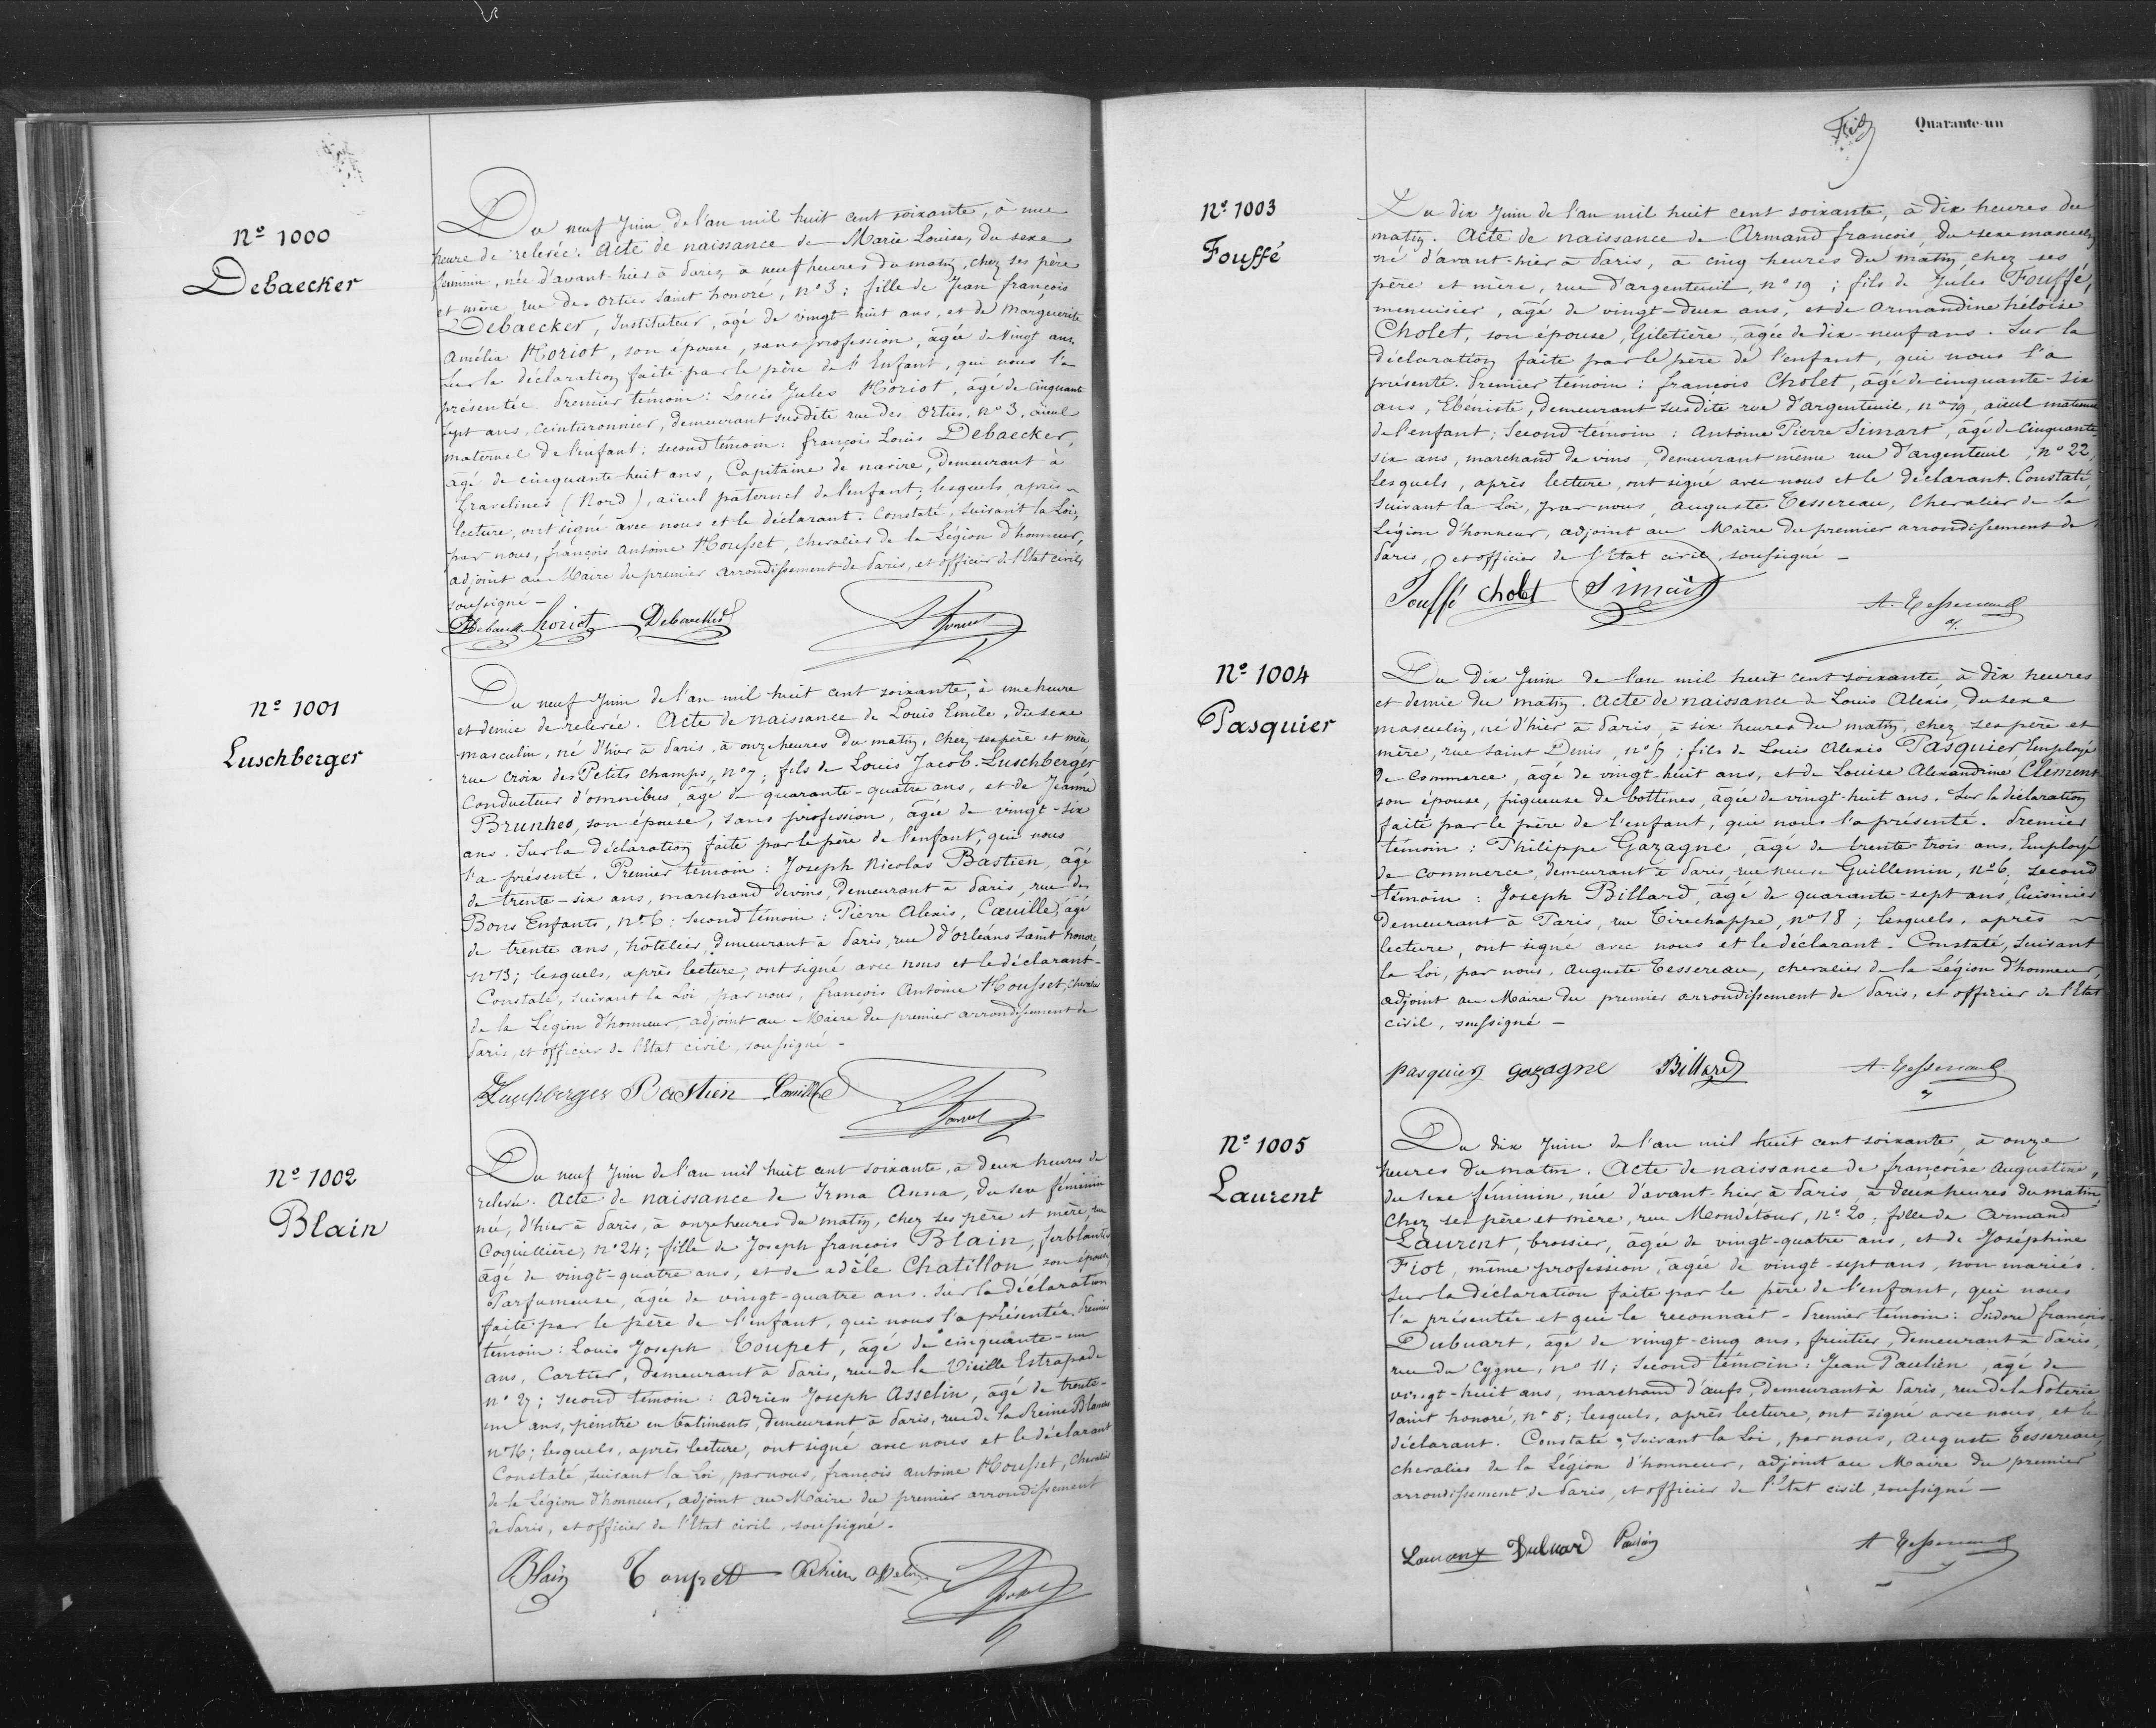 Nº 1000
Debaecker
Du neuf Juin de l'an mil huit cent soixante, à une
heure de relevée. Acte de naissance de Marie Louise, du sexe
féminin, née d'avant-hier à Paris, à neuf heures du matin, chez ses père
et mère, rue des Orties Saint honoré, nº 3; fille de Jean françois
Debaecker, Instituteur, âgé de vingt huit ans, et de Marguerite
Amélia Horiot, son épouse, sans profession, âgée de Vingt ans.
Sur la déclaration faite par le père de l'Enfant, qui nous l'a
présentée Premier témoin: Louis Jules Horiot, âgé de cinquante
sept ans, ceinturonnier, demeurant susdite rue des Orties, nº 3, aïeul
maternel de l'enfant; second témoin: françois Louis Debaecker,
âgé de cinquante huit ans, Capitaine de navire, demeurant à
Gravelines (Nord), aïeul paternel de l'enfant; lesquels, après
lecture, ont signé avec nous et le déclarant. Constaté, suivant la Loi,
par nous, françois antoine Housset, chevalier de la Légion d'honneur,
adjoint au Maire du premier arrondissement de Paris, et officier de l'Etat civil,
soussigné —
Debaecker horiot Debaecker
Nº 1001
Luschberger
Du neuf Juin de l'an mil huit cent soixante, à une heure
et demie de relevée. Acte de naissance de Louis Emile, du sexe
masculin, né d'hier à Paris, à onze heures du matin, chez ses père et mère
rue Croix des Petits champs, nº 7; fils de Louis Jacob Luschberger
Conducteur d'omnibus, âgé de quarante-quatre ans, et de Jeanne
Brunhes, son épouse, sans profession, âgée de vingt-six
ans. Sur la déclaration faite par le père de l'enfant, qui nous
l'a présenté. Premier témoin: Joseph Nicolas Bastien, âgé
de trente-six ans, marchand de vins, demeurant à Paris, rue des
Bons Enfants, nº 6; second témoin: Pierre Alexis, Cauille, âgé
de trente ans, hôtelier, demeurant à Paris, rue d'Orléans Saint honoré,
nº 13; lesquels, après lecture, ont signé avec nous et le déclarant-
Constaté, suivant la Loi, par nous, françois Antoine Housset, chevalier
de la Légion d'honneur, adjoint au Maire du premier arrondissement de
Paris, et officier de l'Etat civil, soussigné -
Luschberger Bastien
Nº 1002
Blain
Du neuf Juin de l'an mil huit cent soixante, à deux heures de
relevée. Acte de naissance de Irma Anna, du sexe féminin
née, d'hier à Paris, à onze heures du matin, chez ses père et mère, rue
Coquillière, nº 24; fille de Joseph françois Blain, ferblantier,
âgé de vingt-quatre ans, et de adèle Chatillon son épouse,
Parfumeuse, âgée de vingt-quatre ans. Sur la déclaration
faite par le père de l'enfant, qui nous l'a présentée. Premier
témoin: Louis Joseph Toupet, âgé de cinquante-un
ans, Cartier, demeurant à Paris, rue de la Vieille Estrapade
second témoin: Adrien Joseph Asselin, âgé de trente-
un ans, peintre en bâtiments, demeurant à Paris, rue de la Reine Blanche
nº 16; lesquels, après lecture, ont signé avec nous et le déclarant
Constaté, suivant la Loi, par nous, françois antoine Housset, Chevalier
de la Légion d'honneur, adjoint au Maire du premier arrondissement
de Paris, et officier de l'Etat civil, soussigné.
Blain Toupet Adrien Asselin
Quarante-un
Nº 1003
Fouffé
Du dix Juin de l'an mil huit cent soixante, à dix heures du
matin. Acte de naissance de Armand françois, du sexe masculin
né d'avant-hier à Paris, à cinq heures du matin, chez ses
père et mère, rue d'argenteuil, nº 19; fils de Jules Fouffé,
menuisier, âgé de vingt-deux ans, et de Armandine héloïse
Cholet, son épouse, Giletière, âgée de dix-neuf ans. Sur la
déclaration faite par le père de l'enfant, qui nous l'a
présenté. Premier témoin: françois Cholet, âgé de cinquante-six
ans, Ebéniste, demeurant susdite rue d'argenteuil, nº 19, aïeul maternel
de l'enfant; Second témoin: Antoine Pierre Simart, âgé de Cinquante-
six ans, marchand de vins, demeurant même rue d'argenteuil, nº 22,
Lesquels, après lecture, ont signé avec nous et le déclarant. Constaté,
suivant la Loi, par nous, Auguste Tessereau, Chevalier de la
Légion d'honneur, adjoint au Maire du premier arrondissement de
Paris, et officier de l'Etat civil, soussigné —
Fouffé Cholet Simart A. Tessereau
Nº 1004
Pasquier
Du dix Juin de l'an mil huit cent soixante, à dix heures
et demie du matin. Acte de naissance de Louis Alexis, du sexe
masculin, né d'hier à Paris, à six heures du matin, chez ses père et
mère, rue Saint Denis, fils de Louis Alexis Pasquier, Employé
de Commerce, âgé de vingt-huit ans, et de Louise Alexandrine Clément
son épouse, piqueuse de bottines, âgée de vingt-huit ans. Sur la déclaration
faite par le père de l'enfant, qui nous l'a présenté. Premier
témoin: Philippe Gazagne, âgé de trente trois ans, Employé
de commerce, demeurant à Paris, rue neuve Guillemin, nº 6; second
témoin: Joseph Billard, âgé de quarante-sept ans, Cuisinier
demeurant à Paris, rue Tirechappe, nº 18; lesquels, après
lecture, ont signé avec nous et le déclarant - Constaté, suivant
la Loi, par nous, Auguste Tessereau, chevalier de la Légion d'honneur,
adjoint au Maire du premier arrondissement de Paris, et officier de l'Etat
civil, soussigné —
Pasquier gazagne Billard A. Tessereau
Nº 1005
Laurent
Du dix Juin de l'an mil huit cent soixante, à onze
heures du matin. Acte de naissance de françoise Augustine,
du sexe féminin, née d'avant-hier à Paris, à deux heures du matin
Chez ses père et mère, rue Mondétour, Nº 20; fille de Armand
Laurent, brossier, âgée de vingt-quatre ans, et de Joséphine
Fiot, même profession, âgée de vingt-sept ans, non mariés.
Sur la déclaration faite par le père de l'enfant, qui nous
l'a présentée et qui le reconnait - Premier témoin: Isidore françois
Dubuart, âgé de vingt-cinq ans, fruitier, demeurant à Paris,
rue du Cygne, nº 11; second témoin: Jean Paulien, âgé de
vingt-huit ans, marchand d'œufs, demeurant à Paris, rue de la Poterie
Saint honoré, nº 5; lesquels, après lecture, ont signé avec nous, et le
déclarant. Constaté, suivant la Loi, par nous, Auguste Tessereau,
chevalier de la Légion d'honneur, adjoint au Maire du premier
arrondissement de Paris, et officier de l'Etat civil, soussigné —
Laurent Dubuar Paulien A Tessereau